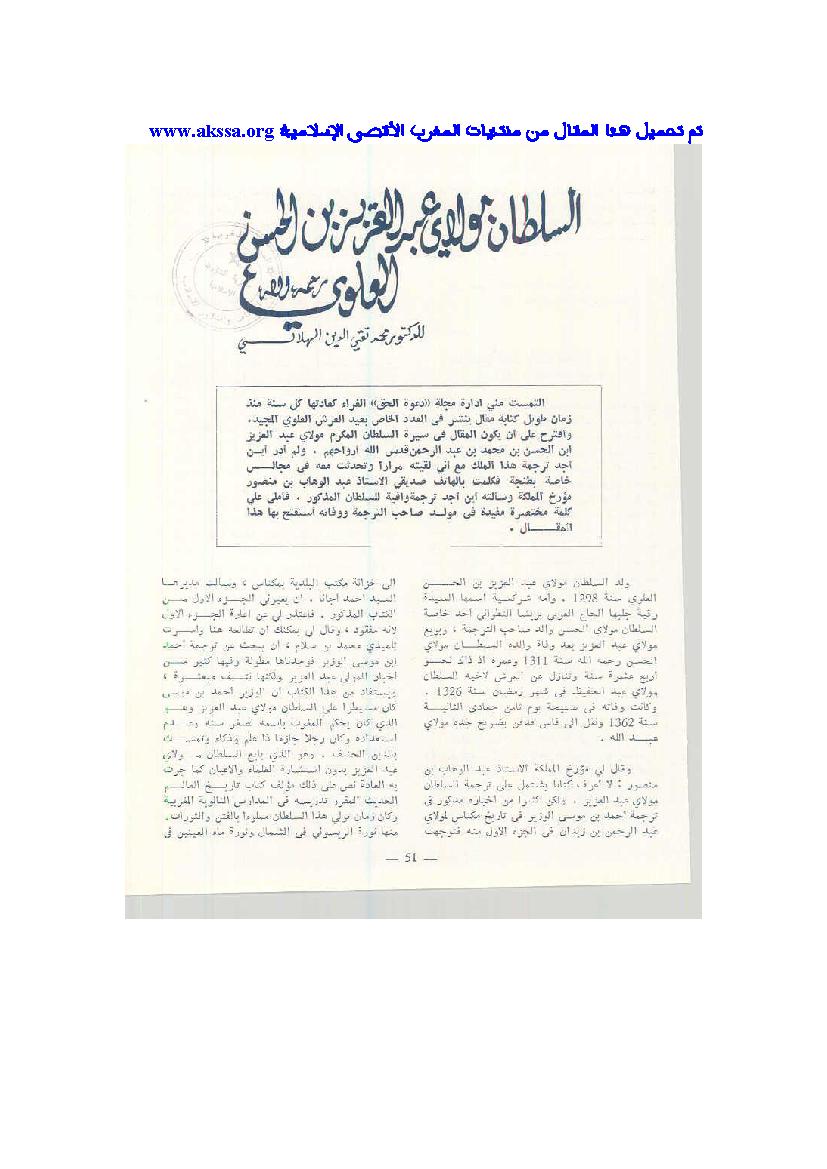 تم تحميل هذا المقال من منتديات المغرب الأقصى الإسلامية www.akssa.org
السلطان مولاي عبد العزيز بن الحسن
العلوي رحمه الله
للدكتور محمد تقي الدين الهلالي
التمست مني ادارة مجلة «دعوة الحق» الغراء كعادتها كل سنة منذ
زمان طويل كتابة مقال ينشر في العدد الخاص بعيد العرش العلوي المجيد.
واقترح علي ان يكون المقال في سيرة السلطان المكرم مولاي عبد العزيز
ابن الحسن بن محمد بن عبد الرحمن قدس الله ارواحهم ، ولم أدر أين
اجد ترجمة هذا الملك مع اني لقيته مرارا وتحدثت معه في مجالس
خاصة بطنجة فكلمت بالهاتف صديقي الاستاذ عبد الوهاب بن منصور
مؤرخ المملكة وسالته اين اجد ترجمة وافية للسلطان المذكور ، فاملى علي
كلمة مختصرة مفيدة في مولد صاحب الترجمة ووفاته استفتح بها هذا
المقـــال .
ولد السلطان مولاي عبد العزيز بن الحســن
العلوي سنة 1298 . وامه شركسية اسمها السيدة
رقية جلبها الحاج العربي بريشا التطواني احد خاصة
السلطان مولاي الحسن والد صاحب الترجمة ، وبويع
مولاي عبد العزيز بعد وفاة والده السلطــان مولاي
الحسن رحمه الله سنة 1311 وعمره اذ ذاك نحــو
اربع عشرة سنة وتنازل عن العرش لاخيه السلطان
مولاي عبد الحفيظ في شهر رمضان سنة 1326 .
وكانت وفاته في صبيحة يوم ثامن جمادى الثانيــة
سنة 1362 ونقل الى فاس فدفن بضريح جده مولاي
عبــد الله .
وقال لي مؤرخ المملكة الاستاذ عبد الوهاب بن
منصور : لا اعرف كتابا يشتمل على ترجمة السلطان
مولاي عبد العزيز . ولكن كثيرا من اخباره مذكور في
ترجمة احمد بن موسى الوزير في تاريخ مكناس لمولاي
عبد الرحمن بن زيدان في الجزء الاول منه فتوجهت
الى خزانة مكتب البلدية بمكناس ، وسالت مديرهــا
السيد احمد اجانا ، ان يعيرني الجــزء الاول مــن
الكتاب المذكور . فاعتذر لي عن اعارة الجــزء الاول
لانه مفقود ، وقال لي يمكنك ان تطالعه هنا وامــرت
تلميذي محمد بن سلام ، ان يبحث عن ترجمة احمد
ابن موسى الوزير فوجدناها مطولة وفيها كثير مــن
اخبار المولى عبد العزيز ولكنها نتــف مبعثــرة ،
ويستفاد من هذا الكتاب ان الوزير احمد بن موسى
كان مسيطرا على السلطان مولاي عبد العزيز وهــو
الذي كان يحكم المغرب باسمه لصغر سنه وعــدم
استعداده وكان رجلا حازما ذا علم وذكاء وتمســك
بالدين الحنيف . وهو الذي بايع السلطان مــولاي
عبد العزيز بدون استشارة العلماء والاعيان كما جرت
به العادة نص على ذلك مؤلف كتاب تاريــخ العالــم
الحديث المقرر تدريسه في المدارس الثانوية المغربية
وكان زمان تولي هذا السلطان مملوءا بالفتن والثورات.
منها ثورة الريسولي في الشمال وثورة ماء العينين في
— 51 —